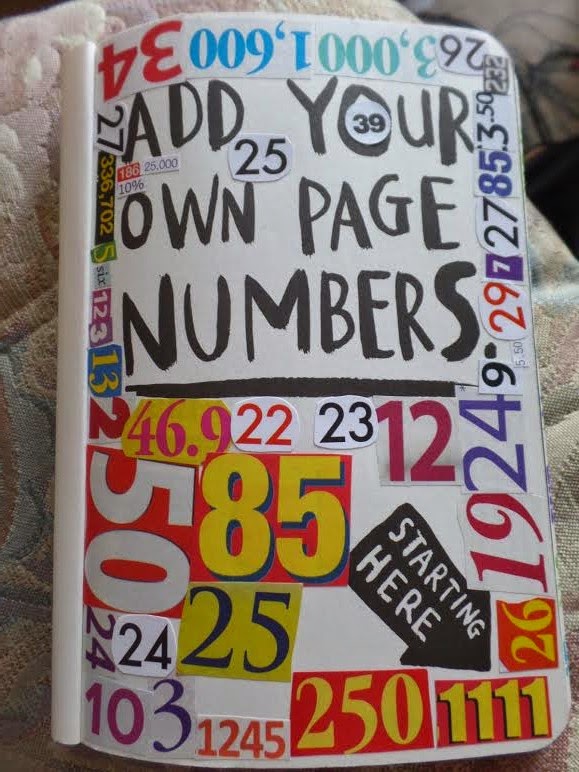 34
1,600
000
3,000
26
232
27
ADD YOUR
39
3.50
85
336,702
186 25,000
10%
25
OWN PAGE
27
5
six
7
NUMBERS
123
29
13
5.50
9
2
46.9
22
23
12
24
50
85
19
STARTING
HERE
24
24
25
26
10
3
1245
250
1111